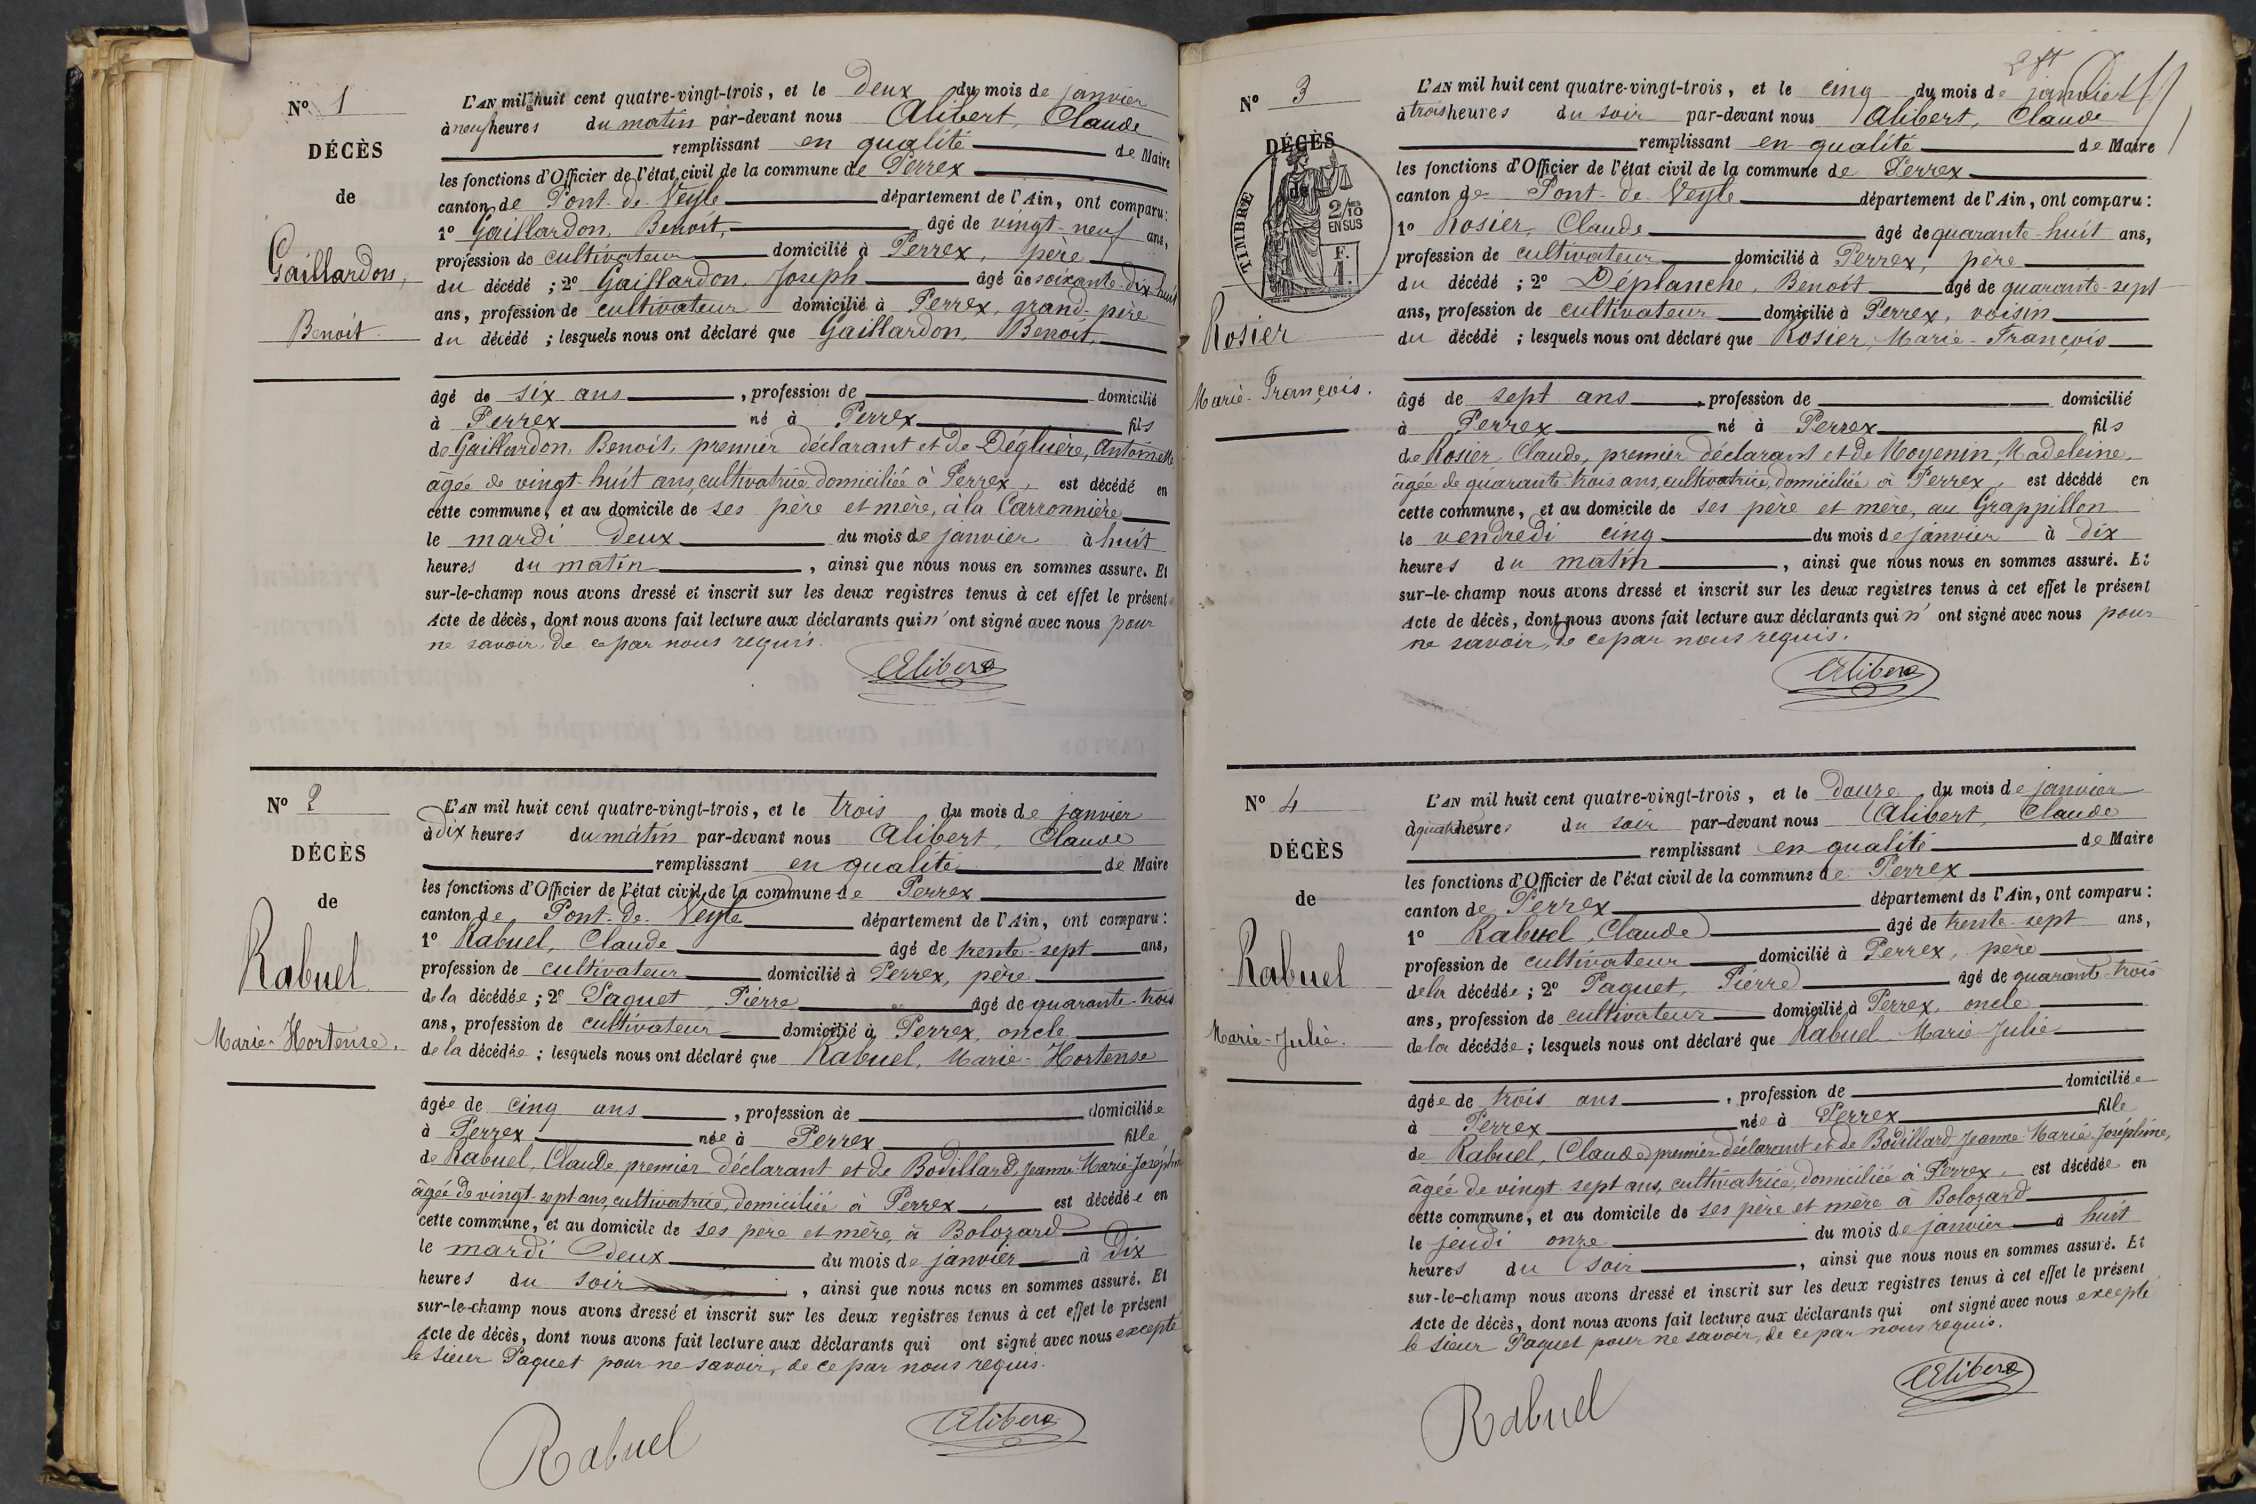 N° 1
DÉCÈS
de
Gaillardon,
Benoit
L'AN mil huit cent quatre-vingt-trois, et le deux du mois de janvier
à neuf heures du matin par-devant nous Alibert, Claude
remplissant en qualité de Maire
les fonctions d'Officier de l'état civil de la commune de Perrex
canton de Pont-de-Veyle département de l'Ain, ont comparu :
1° Gaillardon, Benoit, âgé de vingt-neuf ans,
profession de cultivateur domicilié à Perrex, père
du décédé ; 2° Gaillardon, Joseph âgé de soixante-dix-huit
ans, profession de cultivateur domicilié à Perrex, grand-père
du décédé ; lesquels nous ont déclaré que Gaillardon, Benoit,
âgé de six ans, profession de domicilié
à Perrex né à Perrex fils
de Gaillardon, Benoit, premier déclarant et de Dégluère, Antoinette
âgée de vingt-huit ans, cultivatrice, domiciliée à Perrex, est décédé en
cette commune, et au domicile de ses père et mère, à la Carronnière
le mardi deux du mois de janvier à huit
heures du matin, ainsi que nous nous en sommes assuré. Et
sur-le-champ nous avons dressé et inscrit sur les deux registres tenus à cet effet le présent
Acte de décès, dont nous avons fait lecture aux déclarants qui n'ont signé avec nous pour
ne savoir, de ce par nous requis.
Alibert
N° 2
DÉCÈS
de
Rabuel
Marie-Hortense.
L'AN mil huit cent quatre-vingt-trois, et le trois du mois de janvier
à dix heures du matin par-devant nous Alibert, Claude
remplissant en qualité de Maire
les fonctions d'Officier de l'état civil de la commune de Perrex
canton de Pont-de-Veyle département de l'Ain, ont comparu :
1° Rabuel, Claude âgé de trente-sept ans,
profession de cultivateur domicilié à Perrex, père
de la décédée ; 2° Paquet, Pierre âgé de quarante-trois
ans, profession de cultivateur domicilié à Perrex, oncle
de la décédée ; lesquels nous ont déclaré que Rabuel, Marie-Hortense
âgée de cinq ans, profession de domiciliée
à Perrex née à Perrex fille
de Rabuel, Claude, premier déclarant et de Bodillard, Jeanne-Marie-Joséphine
âgée de vingt-sept ans, cultivatrice, domiciliée à Perrex, est décédée en
cette commune, et au domicile de ses père et mère, à Bolozard
le mardi deux du mois de janvier à dix
heures du soir, ainsi que nous nous en sommes assuré. Et
sur-le-champ nous avons dressé et inscrit sur les deux registres tenus à cet effet le présent
Acte de décès, dont nous avons fait lecture aux déclarants qui ont signé avec nous excepté
le sieur Paquet pour ne savoir, de ce par nous requis.
Rabuel Alibert
N° 3
DÉCÈS
de
TIMBRE
2/10
EN SUS
F.
1.
Rosier
Marie-François.
L'AN mil huit cent quatre-vingt-trois, et le cinq du mois de janvier
à trois heures du soir par-devant nous Alibert, Claude
remplissant en qualité de Maire
les fonctions d'Officier de l'état civil de la commune de Perrex
canton de Pont-de-Veyle département de l'Ain, ont comparu :
1° Rosier, Claude âgé de quarante-huit ans,
profession de cultivateur domicilié à Perrex, père
du décédé ; 2° Déplanche, Benoit âgé de quarante-sept
ans, profession de cultivateur domicilié à Perrex, voisin
du décédé ; lesquels nous ont déclaré que Rosier, Marie-François
âgé de sept ans, profession de domicilié
à Perrex né à Perrex fils
de Rosier, Claude, premier déclarant et de Moyenin, Madeleine,
âgée de quarante-trois ans, cultivatrice, domiciliée à Perrex, est décédé en
cette commune, et au domicile de ses père et mère, au Grappillon
le vendredi cinq du mois de janvier à dix
heures du matin, ainsi que nous nous en sommes assuré. Et
sur-le-champ nous avons dressé et inscrit sur les deux registres tenus à cet effet le présent
Acte de décès, dont nous avons fait lecture aux déclarants qui n'ont signé avec nous pour
ne savoir, de ce par nous requis.
Alibert
N° 4
DÉCÈS
de
Rabuel
Marie-Julie.
L'AN mil huit cent quatre-vingt-trois, et le douze du mois de janvier
à quatre heures du soir par-devant nous Alibert, Claude
remplissant en qualité de Maire
les fonctions d'Officier de l'état civil de la commune de Perrex
canton de Perrex département de l'Ain, ont comparu :
1° Rabuel, Claude âgé de trente-sept ans,
profession de cultivateur domicilié à Perrex, père
de la décédée ; 2° Paquet, Pierre âgé de quarante-trois
ans, profession de cultivateur domicilié à Perrex, oncle
de la décédée ; lesquels nous ont déclaré que Rabuel Marie-Julie
âgée de trois ans, profession de domiciliée
à Perrex née à Perrex fille
de Rabuel, Claude, premier déclarant et de Bodillard Jeanne-Marie-Joséphine,
âgée de vingt-sept ans, cultivatrice, domiciliée à Perrex, est décédée en
cette commune, et au domicile de ses père et mère à Bolozard
le jeudi onze du mois de janvier à huit
heures du soir, ainsi que nous nous en sommes assuré. Et
sur-le-champ nous avons dressé et inscrit sur les deux registres tenus à cet effet le présent
Acte de décès, dont nous avons fait lecture aux déclarants qui ont signé avec nous excepté
le sieur Paquet pour ne savoir, de ce par nous requis.
Rabuel Alibert